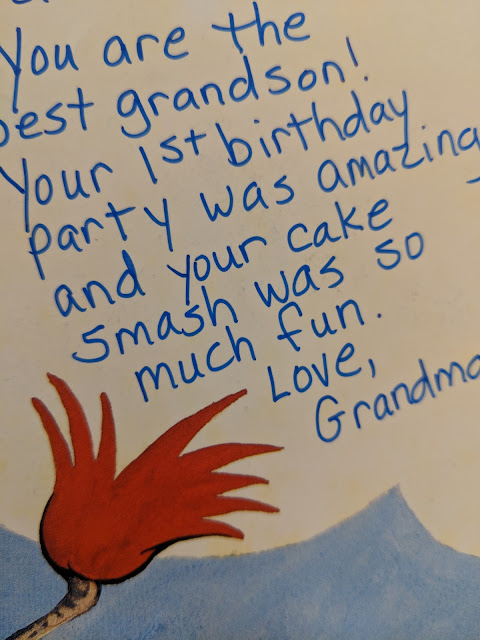 You are the
best grandson!
Your 1st birthday
party was amazing
and your cake
smash was so
much fun.
Love,
Grandma